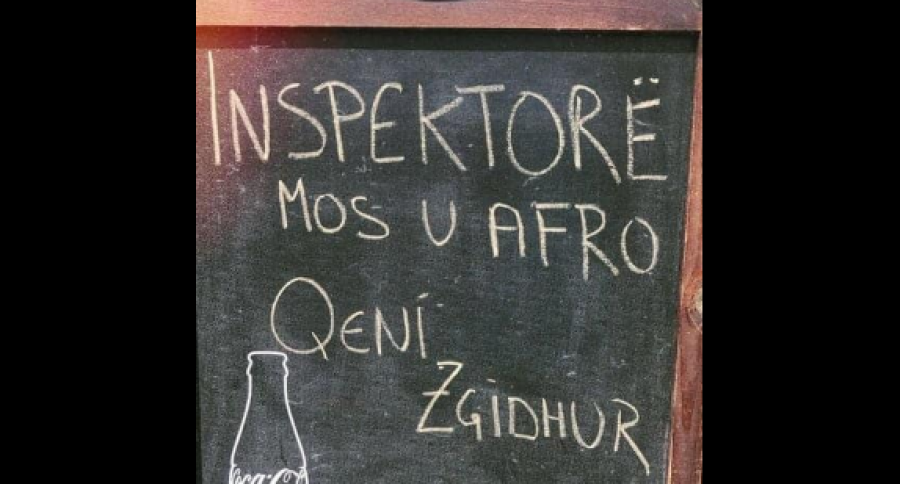 INSPEKTORË
MOS U AFRO
QENI
ZGIDHUR
Coca-Co